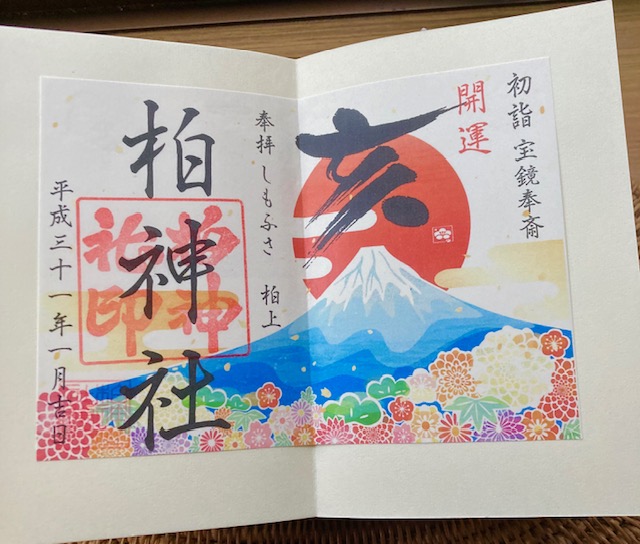 初詣 宝鏡奉斎
開運
亥
奉拝 しもふさ 柏上
柏神社
平成三十一年一月吉日